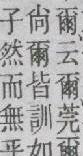 爾云莞爾
尚爾皆訓如
子然而無乎